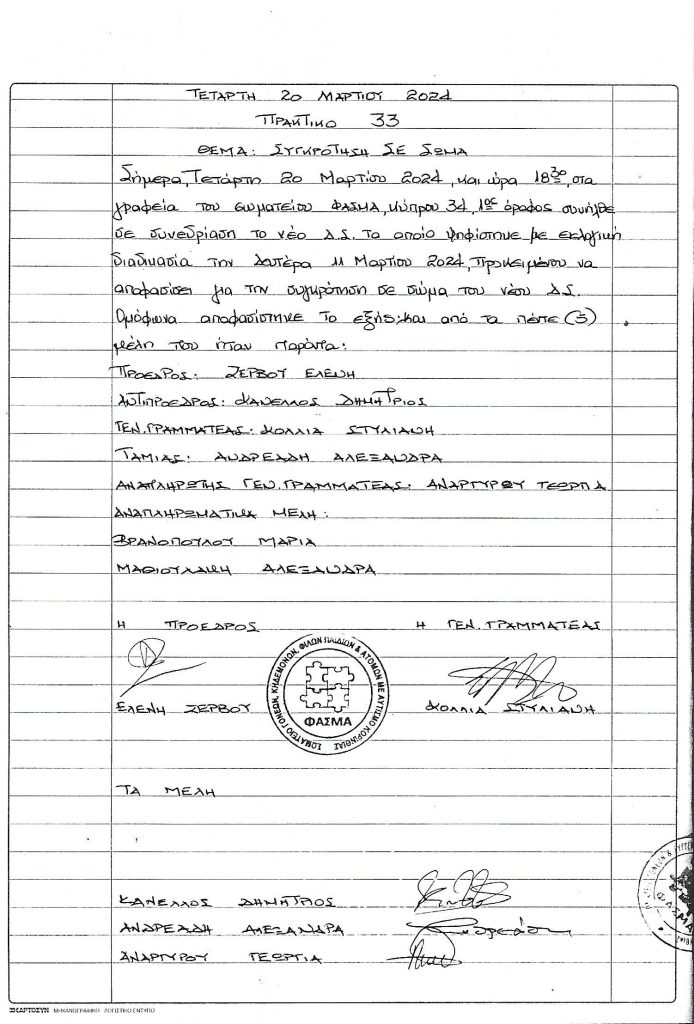 ΤΕΤΑΡΤΗ 20 ΜΑΡΤΙΟΥ 2024
ΠΡΑΚΤΙΚΟ 33
ΘΕΜΑ: ΣΥΓΚΡΟΤΗΣΗ ΣΕ ΣΩΜΑ
Σήμερα, Τετάρτη 20 Μαρτίου 2024, και ώρα 18 30, στα
γραφεία του σωματείου ΦΑΣΜΑ, Κύπρου 34, 1ος όροφος συνήλθε
σε συνεδρίαση το νέο Δ.Σ. το οποίο ψηφίστηκε με εκλογική
διαδικασία την Δευτέρα 11 Μαρτίου 2024, προκειμένου να
αποφασίσει για την συγκρότηση σε σώμα του νέου Δ.Σ.
Ομόφωνα αποφασίστηκε το εξής: και από τα πέντε (5)
μέλη που ήταν παρόντα:
ΠΡΟΕΔΡΟΣ: ΖΕΡΒΟΥ ΕΛΕΝΗ
ΑΝΤΙΠΡΟΕΔΡΟΣ: ΚΑΝΕΛΛΟΣ ΔΗΜΗΤΡΙΟΣ
ΓΕΝ. ΓΡΑΜΜΑΤΕΑΣ: ΚΟΛΛΙΑ ΣΤΥΛΙΑΝΗ
ΤΑΜΙΑΣ: ΑΝΔΡΕΑΔΗ ΑΛΕΞΑΝΔΡΑ
ΑΝΑΠΛΗΡΩΤΗΣ ΓΕΝ. ΓΡΑΜΜΑΤΕΑΣ: ΑΝΑΡΓΥΡΟΥ ΓΕΩΡΓΙΑ
ΑΝΑΠΛΗΡΩΜΑΤΙΚΑ ΜΕΛΗ:
ΒΡΑΝΟΠΟΥΛΟΥ ΜΑΡΙΑ
ΜΑΘΙΟΥΛΑΚΗ ΑΛΕΞΑΝΔΡΑ
Η ΠΡΟΕΔΡΟΣ Η ΓΕΝ. ΓΡΑΜΜΑΤΕΑΣ
ΣΩΜΑΤΕΙΟ ΓΟΝΕΩΝ, ΚΗΔΕΜΟΝΩΝ, ΦΙΛΩΝ ΠΑΙΔΙΩΝ & ΑΤΟΜΩΝ ΜΕ ΑΥΤΙΣΜΟ ΚΟΡΙΝΘΙΑΣ
ΦΑΣΜΑ
ΕΛΕΝΗ ΖΕΡΒΟΥ ΚΟΛΛΙΑ ΣΤΥΛΙΑΝΗ
ΤΑ ΜΕΛΗ
ΚΑΝΕΛΛΟΣ ΔΗΜΗΤΡΙΟΣ
ΑΝΔΡΕΑΔΗ ΑΛΕΞΑΝΔΡΑ
ΑΝΑΡΓΥΡΟΥ ΓΕΩΡΓΙΑ
ΦΑΣΜΑ
ΜΗΧΑΝΟΓΡΑΦΙΚΟ ΛΟΓΙΣΤΙΚΟ ΕΝΤΥΠΟ